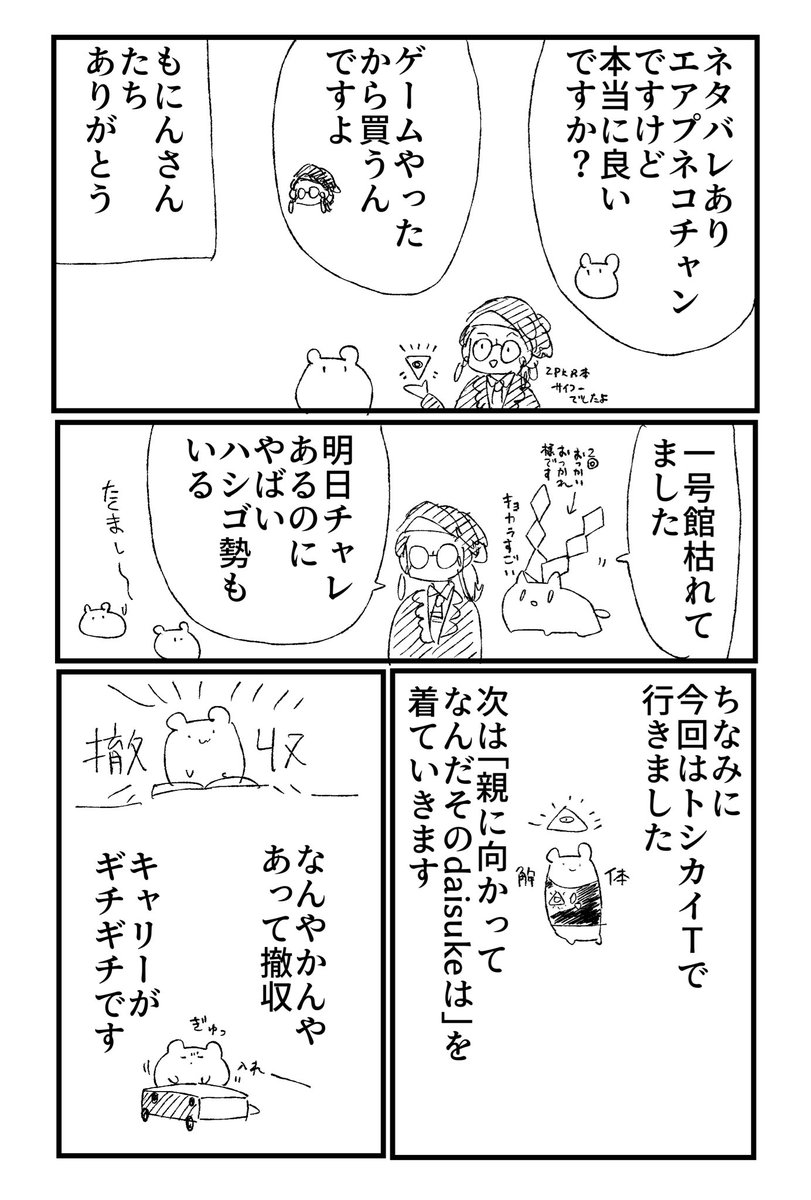 ネタバレあり
エアプネコチャン
ですけど
本当に良い
ですか?
ゲームやった
から買うん
ですよ
もにんさん
たち
ありがとう
2PKR本
サイコー
でしたよ
一号館枯れて
ました
2回
おっかい
おっかれ
様です
キョカラすごい
明日チャレ
あるのに
やばい
ハシゴ勢も
いる
たきまし〜
ちなみに
今回はトシカイTで
行きました
解体
次は「親に向かって
なんだそのdaisukeは」を
着ていきます
撤収
なんやかんや
あって撤収
キャリーが
ギチギチです
ぎゅっ
入れ